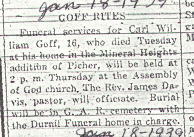 Jan 18-1939
GOFF RITES
Funeral services for Carl Wil-
liam Goff, 16, who died Tuesday
at his home in the Mineral Heights
addition of Picher, will be held at
2 p. m. Thursday at the Assembly
of God church. The Rev. James Dar-
vis, pastor, will officiate. Burial
will be in G. A. R. cemetery with
the Durnil Funeral home in charge.
Jan 18-1939